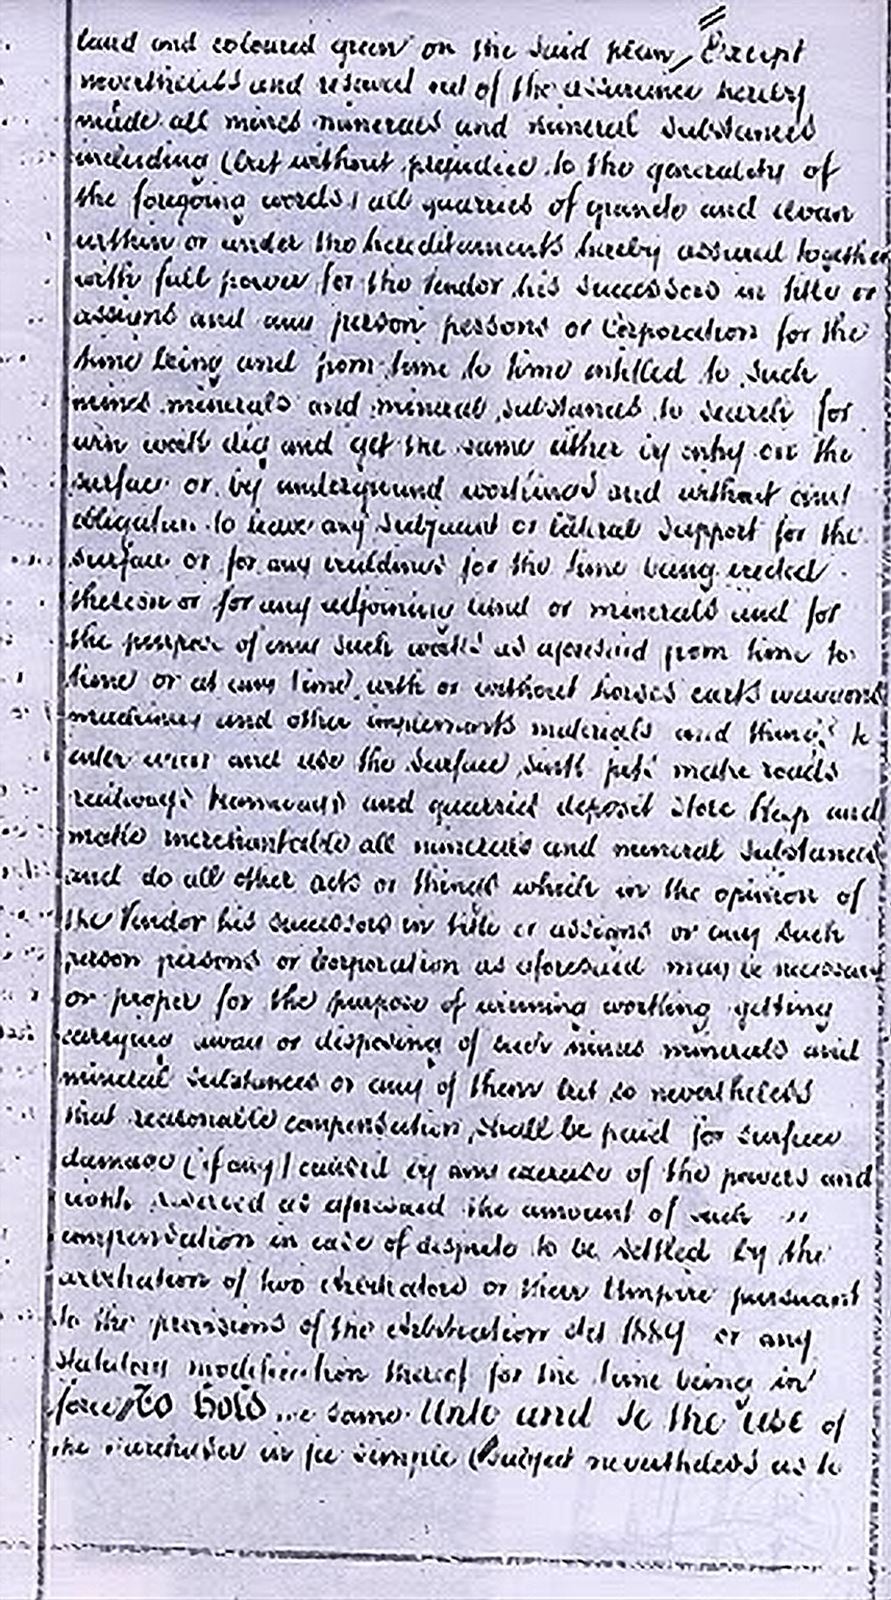 land and coloured green on the said plan, Except
nevertheless and reserved out of the assurance hereby
made all mines minerals and mineral substances
including (but without prejudice to the generality of
the foregoing words) all quarries of granite and elvan
within or under the hereditaments hereby assured together
with full power for the Vendor his successors in title or
assigns and any person persons or Corporation for the
time being and from time to time entitled to such
mines minerals and mineral substances to search for
win work dig and get the same either by entry on the
surface or by underground workings and without any
obligation to leave any subjacent or lateral support for the
surface or for any buildings for the time being erected
thereon or for any adjoining land or minerals and for
the purpose of any such works as aforesaid from time to
time or at any time with or without horses carts waggons
machinery and other implements materials and things to
enter upon and use the surface sink pits make roads
railways tramways and quarries deposit store heap and
make merchantable all minerals and mineral substances
and do all other acts or things which in the opinion of
the Vendor his successors in title or assigns or any such
person persons or Corporation as aforesaid may be necessary
or proper for the purpose of winning working getting
carrying away or disposing of such mines minerals and
mineral substances or any of them but so nevertheless
that reasonable compensation shall be paid for surface
damage (if any) caused by any exercise of the powers and
reserved as aforesaid the amount of such "
compensation in case of dispute to be settled by the
arbitration of two Arbitrators or their Umpire pursuant
to the provisions of the Arbitration Act 1889 or any
statutory modification thereof for the time being in
force To Hold the same Unto and to the use of
the Purchaser in fee simple (Subject nevertheless as to